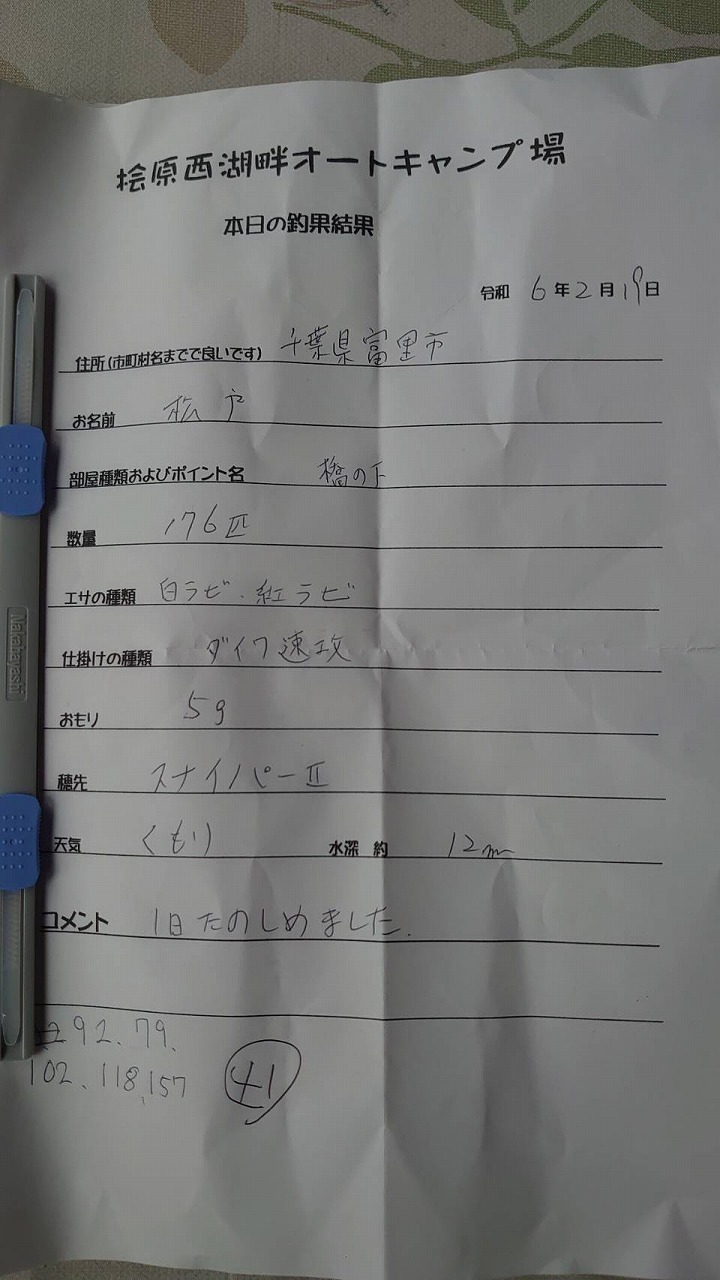 桧原西湖畔オートキャンプ場
本日の釣果結果
令和 6年2月19日
住所(市町村名までで良いです) 千葉県富里市
お名前 松戸
部屋種類およびポイント名 橋の下
数量 176匹
エサの種類 白ラビ.紅ラビ
仕掛けの種類 ダイワ速攻
おもり 5g
穂先 スナイパーⅡ
天気 くもり 水深 約 12m
コメント 1日たのしめました.
92.79.
102.118,157 41
Nakabayashi